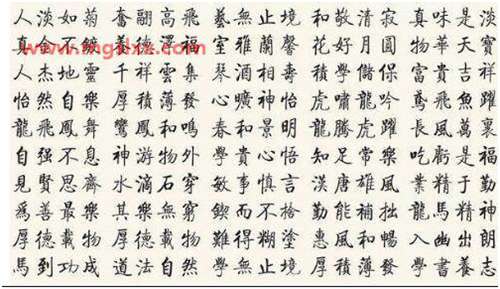 人淡如菊 奮翮高飛 藝無止境 和敬清寂 真味是淡
真 不 福 室雅蘭馨 花好月圓 物華天寶
人杰地靈 千祥雲集 琴酒相壽 學儲 富貴吉祥
怡然自樂 厚積薄發 心曠神怡 虎嘯龍吟 鳶飛魚躍
龍飛鳳舞 鸞鳳和鳴 春和景明 龍騰虎躍 長風萬裏
自强不息 神游物外 學貴心悟 知足常樂 吃虧是福
見賢思齊 水滴石穿 敏事慎言 漢唐雄風 業精于勤
爲善最樂 其樂無窮 鍥而不捨 勤能補拙 龍馬精神
厚德載物 厚德載物 難得糊塗 惠風和暢 入幽出朗
馬到功成 道法自然 學無止境 厚積薄發 學書養志